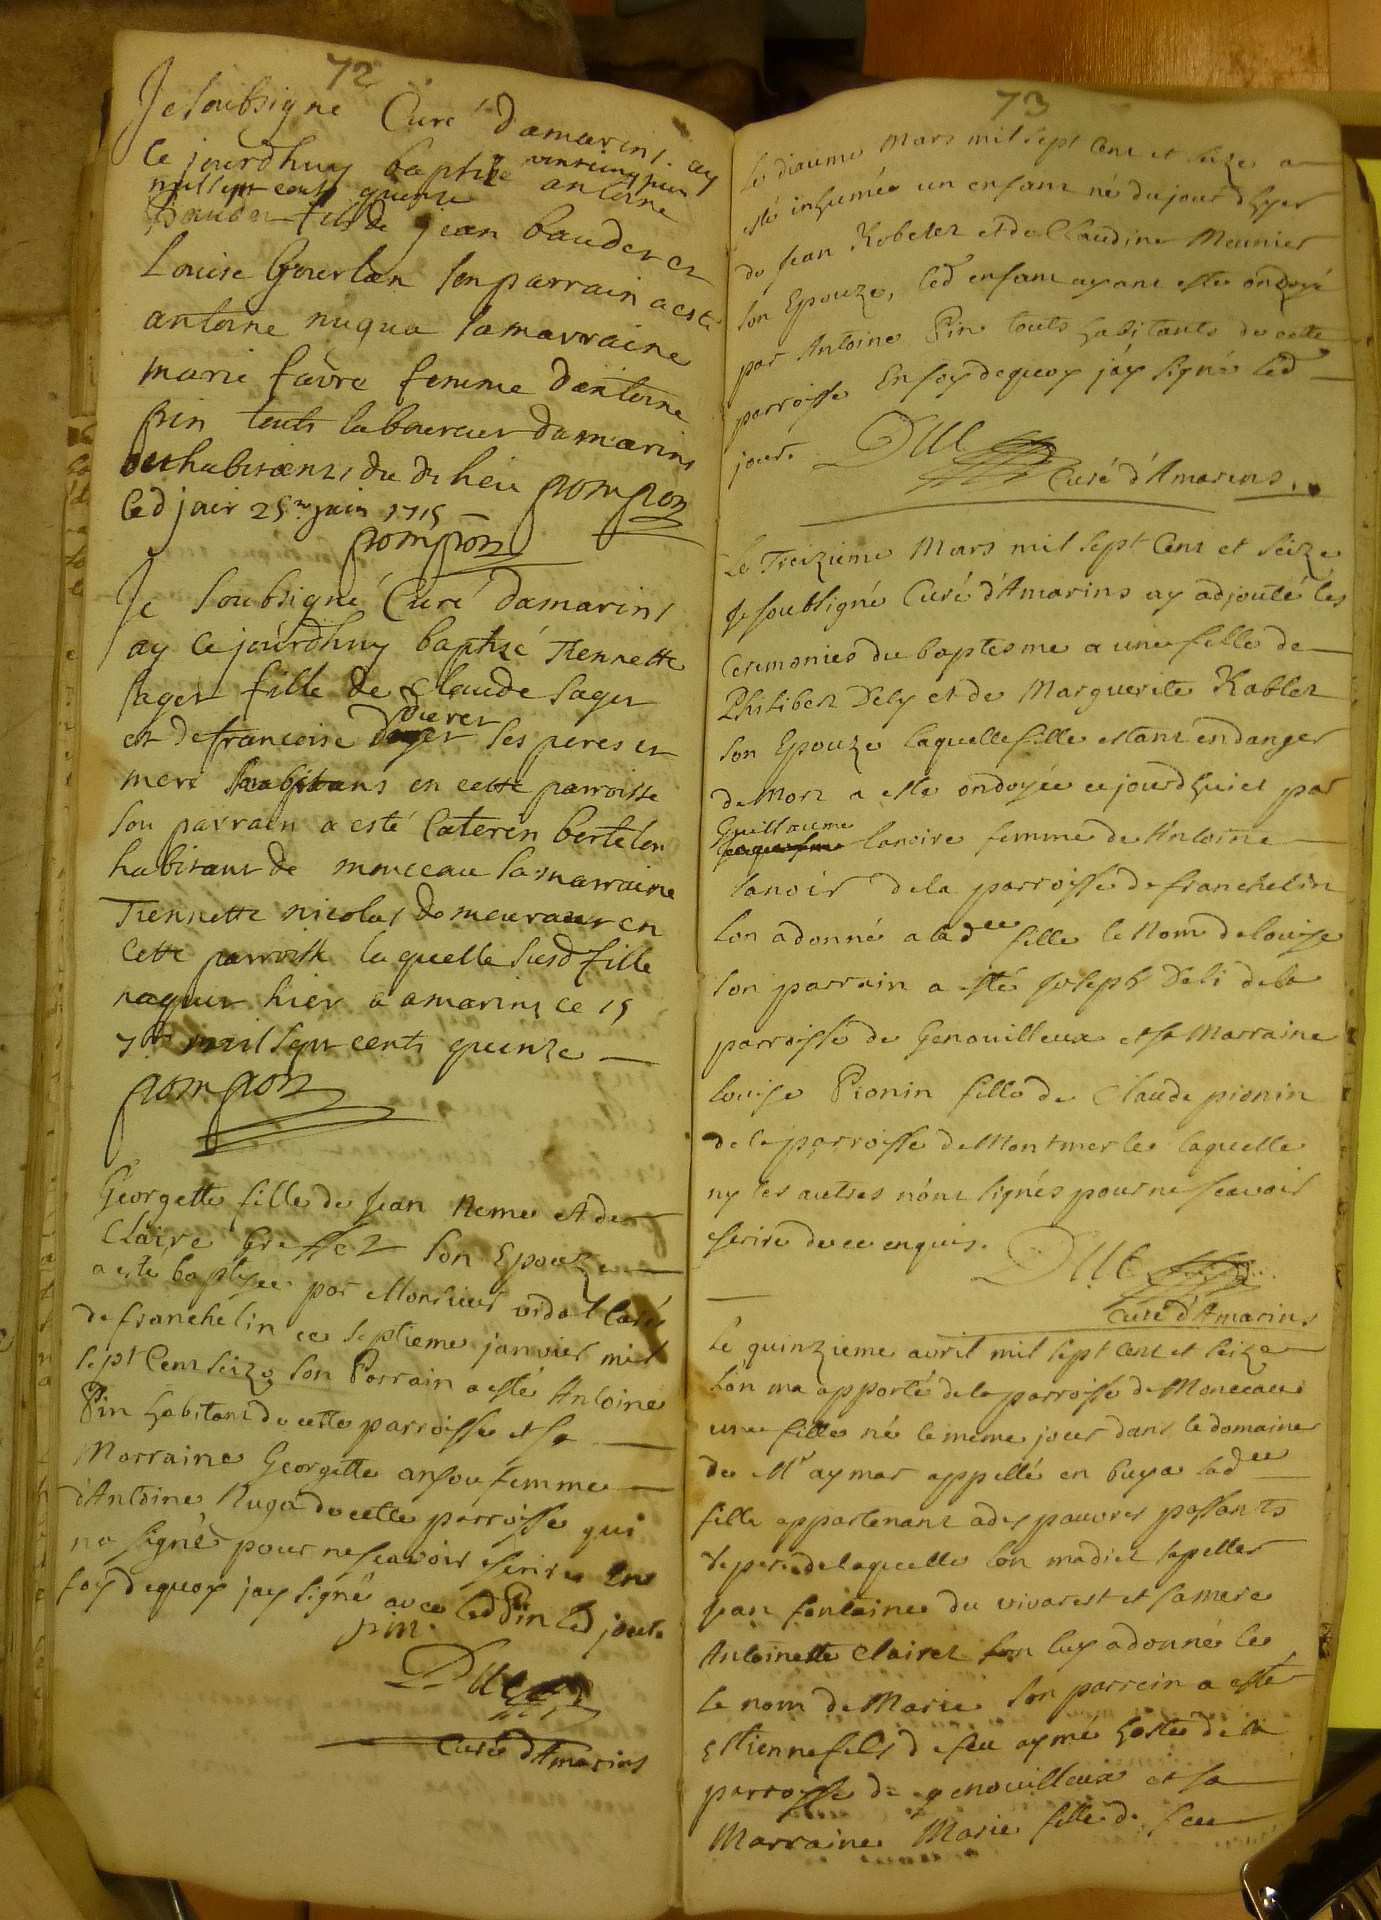 72
Je soubsigne Curé damarins ay
ce jourdhuy baptizé antoine
vintcinq juin
mil sept cents quinze
baudet fils de jean baudet et
Louise Gourlan son parrain a esté
antoine nugua sa marraine
marie favre femme dantoine
pin touts laboureur damarins
et habitants du di lieu pompon
led jour 25me juin 1715
pompon
Je Soubsigné Curé damarins
ay ce jourdhuy baptizé Tiennette
sager fille de claude sager
et de francoise dierer ses peres et
mere habitans en cette parroisse
son parrain a esté Caterin bertelon
habitant de monceau sa marraine
Tiennette nicolas demeurant en
cette parroisse laquelle susd fille
naquit hier a amarins ce 15
7bre mil sept cents quinze
pompon
Georgette fille de Jean Neme et de
Claire son Epouze
a este baptisee par Monsieur vidal Curé
de franchelin ce septieme janvier mil
sept Cent seize son Parrain a esté Antoine
Pin habitant de cette parroisse et sa
Marraine Georgette ansou femme
d'Antoine Nuga de cette parroisse qui
na signé pour ne scavoir escrire En
foy dequoy jay signé avec led Pin led jour
pin
Duc
Curé d'Amarins
73
Le dixieme Mars mil sept Cent et seize a
esté inhumée un enfant né du jour dhyer
de Jean Robelet et de Claudine Meunier
son Epouze, led enfant ayant esté ondoyé
par Antoine Pin touts habitants de cette
parroisse En foy dequoy jay signé led
jour. Duc
Curé d'Amarins.
Le Treizieme Mars mil sept Cent et seize
Je soubsigné Curé d'Amarins ay adjouté les
Ceremonies du baptesme a une fille de
Philibert Dely et de Marguerite Robler
son Epouze laquelle fille estant en danger
de Mort a esté ondoyée ce jourdhuiet par
Guillaume
lanoire femme de Antoine
lanoir de la parroisse de franchelin
lon a donné a lad ee fille le Nom de louise
son parrain a esté Joseph Deli de la
parroisse de Genouilleux et sa Marraine
louise Pionin fille de Claude pionin
de la parroisse de Montmerle laquelle
ny les autres n'ont signés pour ne scavoir
escrire de ce enquis. Duc
Curé d'Amarins
Le quinzieme avril mil sept Cent et seize
lon ma apporté de la parroisse de Monceau
une fille né le meme jour dans le domaine
de Mr aymar appellé en buya lad ee
fille appartenant a des pauvres passants
le pere de laquelle lon ma diet sapeller
jean fontaine du vivarest et sa mere
Antoinette Clairet lon luy a donné le
le nom de Marie son parrein a esté
Estienne fils de feu aymé hoste de la
parroisse de genouilleux et sa
Marraine Marie fille de feu